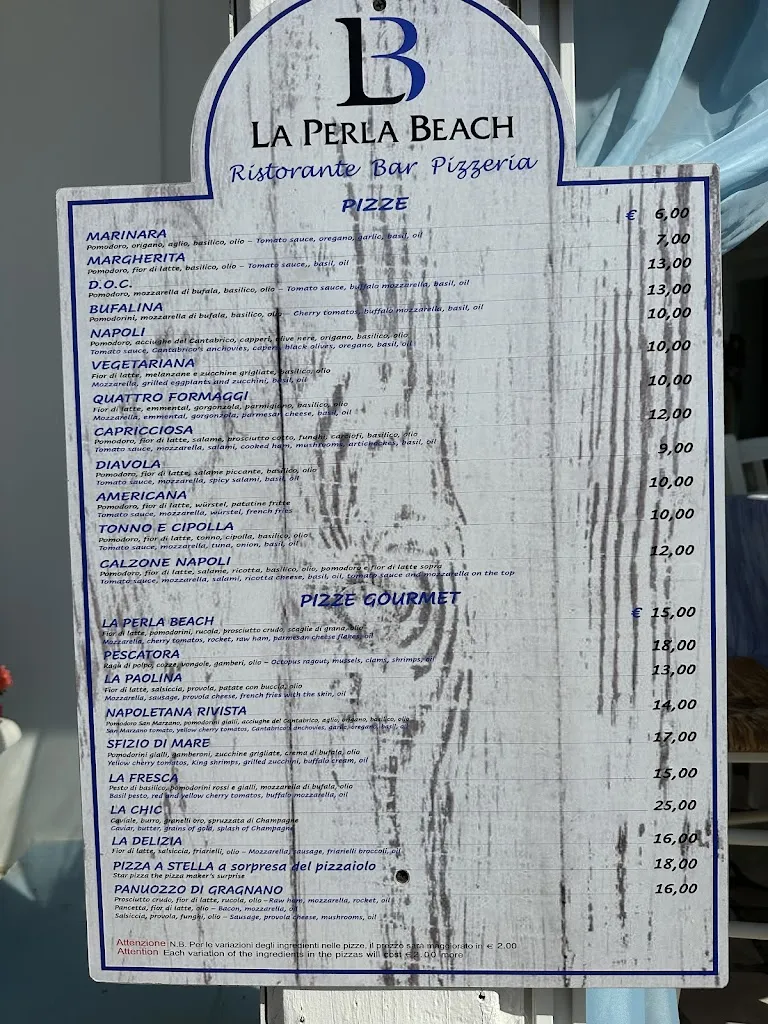 LB
LA PERLA BEACH
Ristorante Bar Pizzeria
PIZZE
MARINARA € 6,00
Pomodoro, origano, aglio, basilico, olio – Tomato sauce, oregano, garlic, basil, oil
MARGHERITA 7,00
Pomodoro, fior di latte, basilico, olio – Tomato sauce,, basil, oil
D.O.C. 13,00
Pomodoro, mozzarella di bufala, basilico, olio – Tomato sauce, buffalo mozzarella, basil, oil
BUFALINA 13,00
Pomodorini, mozzarella di bufala, basilico, olio – Cherry tomatoes, buffalo mozzarella, basil, oil
NAPOLI 10,00
Pomodoro, acciughe del Cantabrico, capperi, olive nere, origano, basilico, olio
Tomato sauce, Cantabrico's anchovies, capers, black olives, oregano, basil, oil
VEGETARIANA 10,00
Fior di latte, melanzane e zucchine grigliate, basilico, olio
Mozzarella, grilled eggplants and zucchini, basil, oil
QUATTRO FORMAGGI 10,00
Fior di latte, emmental, gorgonzola, parmigiano, basilico, olio
Mozzarella, emmental, gorgonzola, parmesan cheese, basil, oil
CAPRICCIOSA 12,00
Pomodoro, fior di latte, salame, prosciutto cotto, funghi, carciofi, basilico, olio
Tomato sauce, mozzarella, salami, cooked ham, mushrooms, artichockes, basil, oil
DIAVOLA 9,00
Pomodoro, fior di latte, salame piccante, basilico, olio
Tomato sauce, mozzarella, spicy salami, basil, oil
AMERICANA 10,00
Pomodoro, fior di latte, würstel, patatine fritte
Tomato sauce, mozzarella, würstel, french fries
TONNO E CIPOLLA 10,00
Pomodoro, fior di latte, tonno, cipolla, basilico, olio
Tomato sauce, mozzarella, tuna, onion, basil, oil
CALZONE NAPOLI 12,00
Pomodoro, fior di latte, salame, ricotta, basilico, olio, pomodoro e fior di latte sopra
Tomato sauce, mozzarella, salami, ricotta cheese, basil, oil, tomato sauce and mozzarella on the top
PIZZE GOURMET
LA PERLA BEACH € 15,00
Fior di latte, pomodorini, rucola, prosciutto crudo, scaglie di grana, olio
Mozzarella, cherry tomatoes, rocket, raw ham, parmesan cheese flakes, oil
PESCATORA 18,00
Ragù di polpo, cozze, vongole, gamberi, olio – Octopus ragout, mussels, clams, shrimps, oil
LA PAOLINA 13,00
Fior di latte, salsiccia, provola, patate con buccia, olio
Mozzarella, sausage, provola cheese, french fries with the skin, oil
NAPOLETANA RIVISTA 14,00
Pomodoro San Marzano, pomodorini gialli, acciughe del Cantabrico, aglio, origano, basilico, olio
San Marzano tomato, yellow cherry tomatoes, Cantabrico's anchovies, garlic, oregano, basil, oil
SFIZIO DI MARE 17,00
Pomodorini gialli, gamberoni, zucchine grigliate, crema di bufala, olio
Yellow cherry tomatoes, King shrimps, grilled zucchini, buffalo cream, oil
LA FRESCA 15,00
Pesto di basilico, pomodorini rossi e gialli, mozzarella di bufala, olio
Basil pesto, red and yellow cherry tomatoes, buffalo mozzarella, oil
LA CHIC 25,00
Caviale, burro, granelli oro, spruzzata di Champagne
Caviar, butter, grains of gold, splash of Champagne
LA DELIZIA 16,00
Fior di latte, salsiccia, friarielli, olio – Mozzarella, sausage, friarielli broccoli, oil
PIZZA A STELLA a sorpresa del pizzaiolo 18,00
Star pizza the pizza maker's surprise
PANUOZZO DI GRAGNANO 16,00
Prosciutto crudo, fior di latte, rucola, olio – Raw ham, mozzarella, rocket, oil
Pancetta, fior di latte, olio – Bacon, mozzarella, oil
Salsiccia, provola, funghi, olio – Sausage, provola cheese, mushrooms, oil
Attenzione N.B. Per le variazioni degli ingredienti nelle pizze, il prezzo sarà maggiorato in € 2.00
Attention Each variation of the ingredients in the pizzas will cost €2.00 more